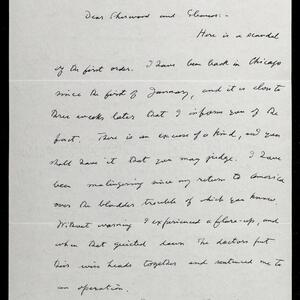 Dear Sherwood and Eleanor:-
Here is a scandal
of the first order. I have been back in Chicago
since the first of January, and it is close to
three weeks later that I inform you of the
fact. There is an excuse of a kind, and you
shall have it that you may judge. I have
been malingering since my return to America
over the bladder trouble of which you know.
Without warning I experienced a flare-up, and
when that quieted down the doctors put
their wise heads together and sentenced me to
an operation.